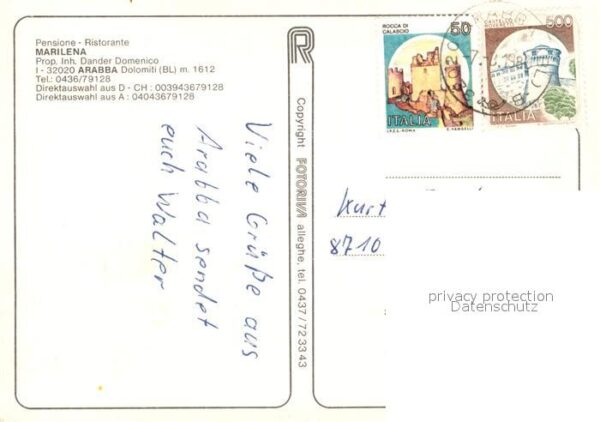 Pensione - Ristorante
MARILENA
Prop. Inh. Dander Domenico
I - 32020 ARABBA Dolomiti (BL) m. 1612
Tel.: 0436/79128
Direktauswahl aus D - CH : 003943679128
Direktauswahl aus A : 04043679128
Viele Grüße aus
Arabba sendet
euch Walter
R
Copyright FOTORIVA alleghe, tel. 0437/723343
ROCCA DI
CALASCIO
50
ITALIA
I.P.Z.S. - ROMA
500
ITALIA
Kurt
8710
privacy protection
Datenschutz